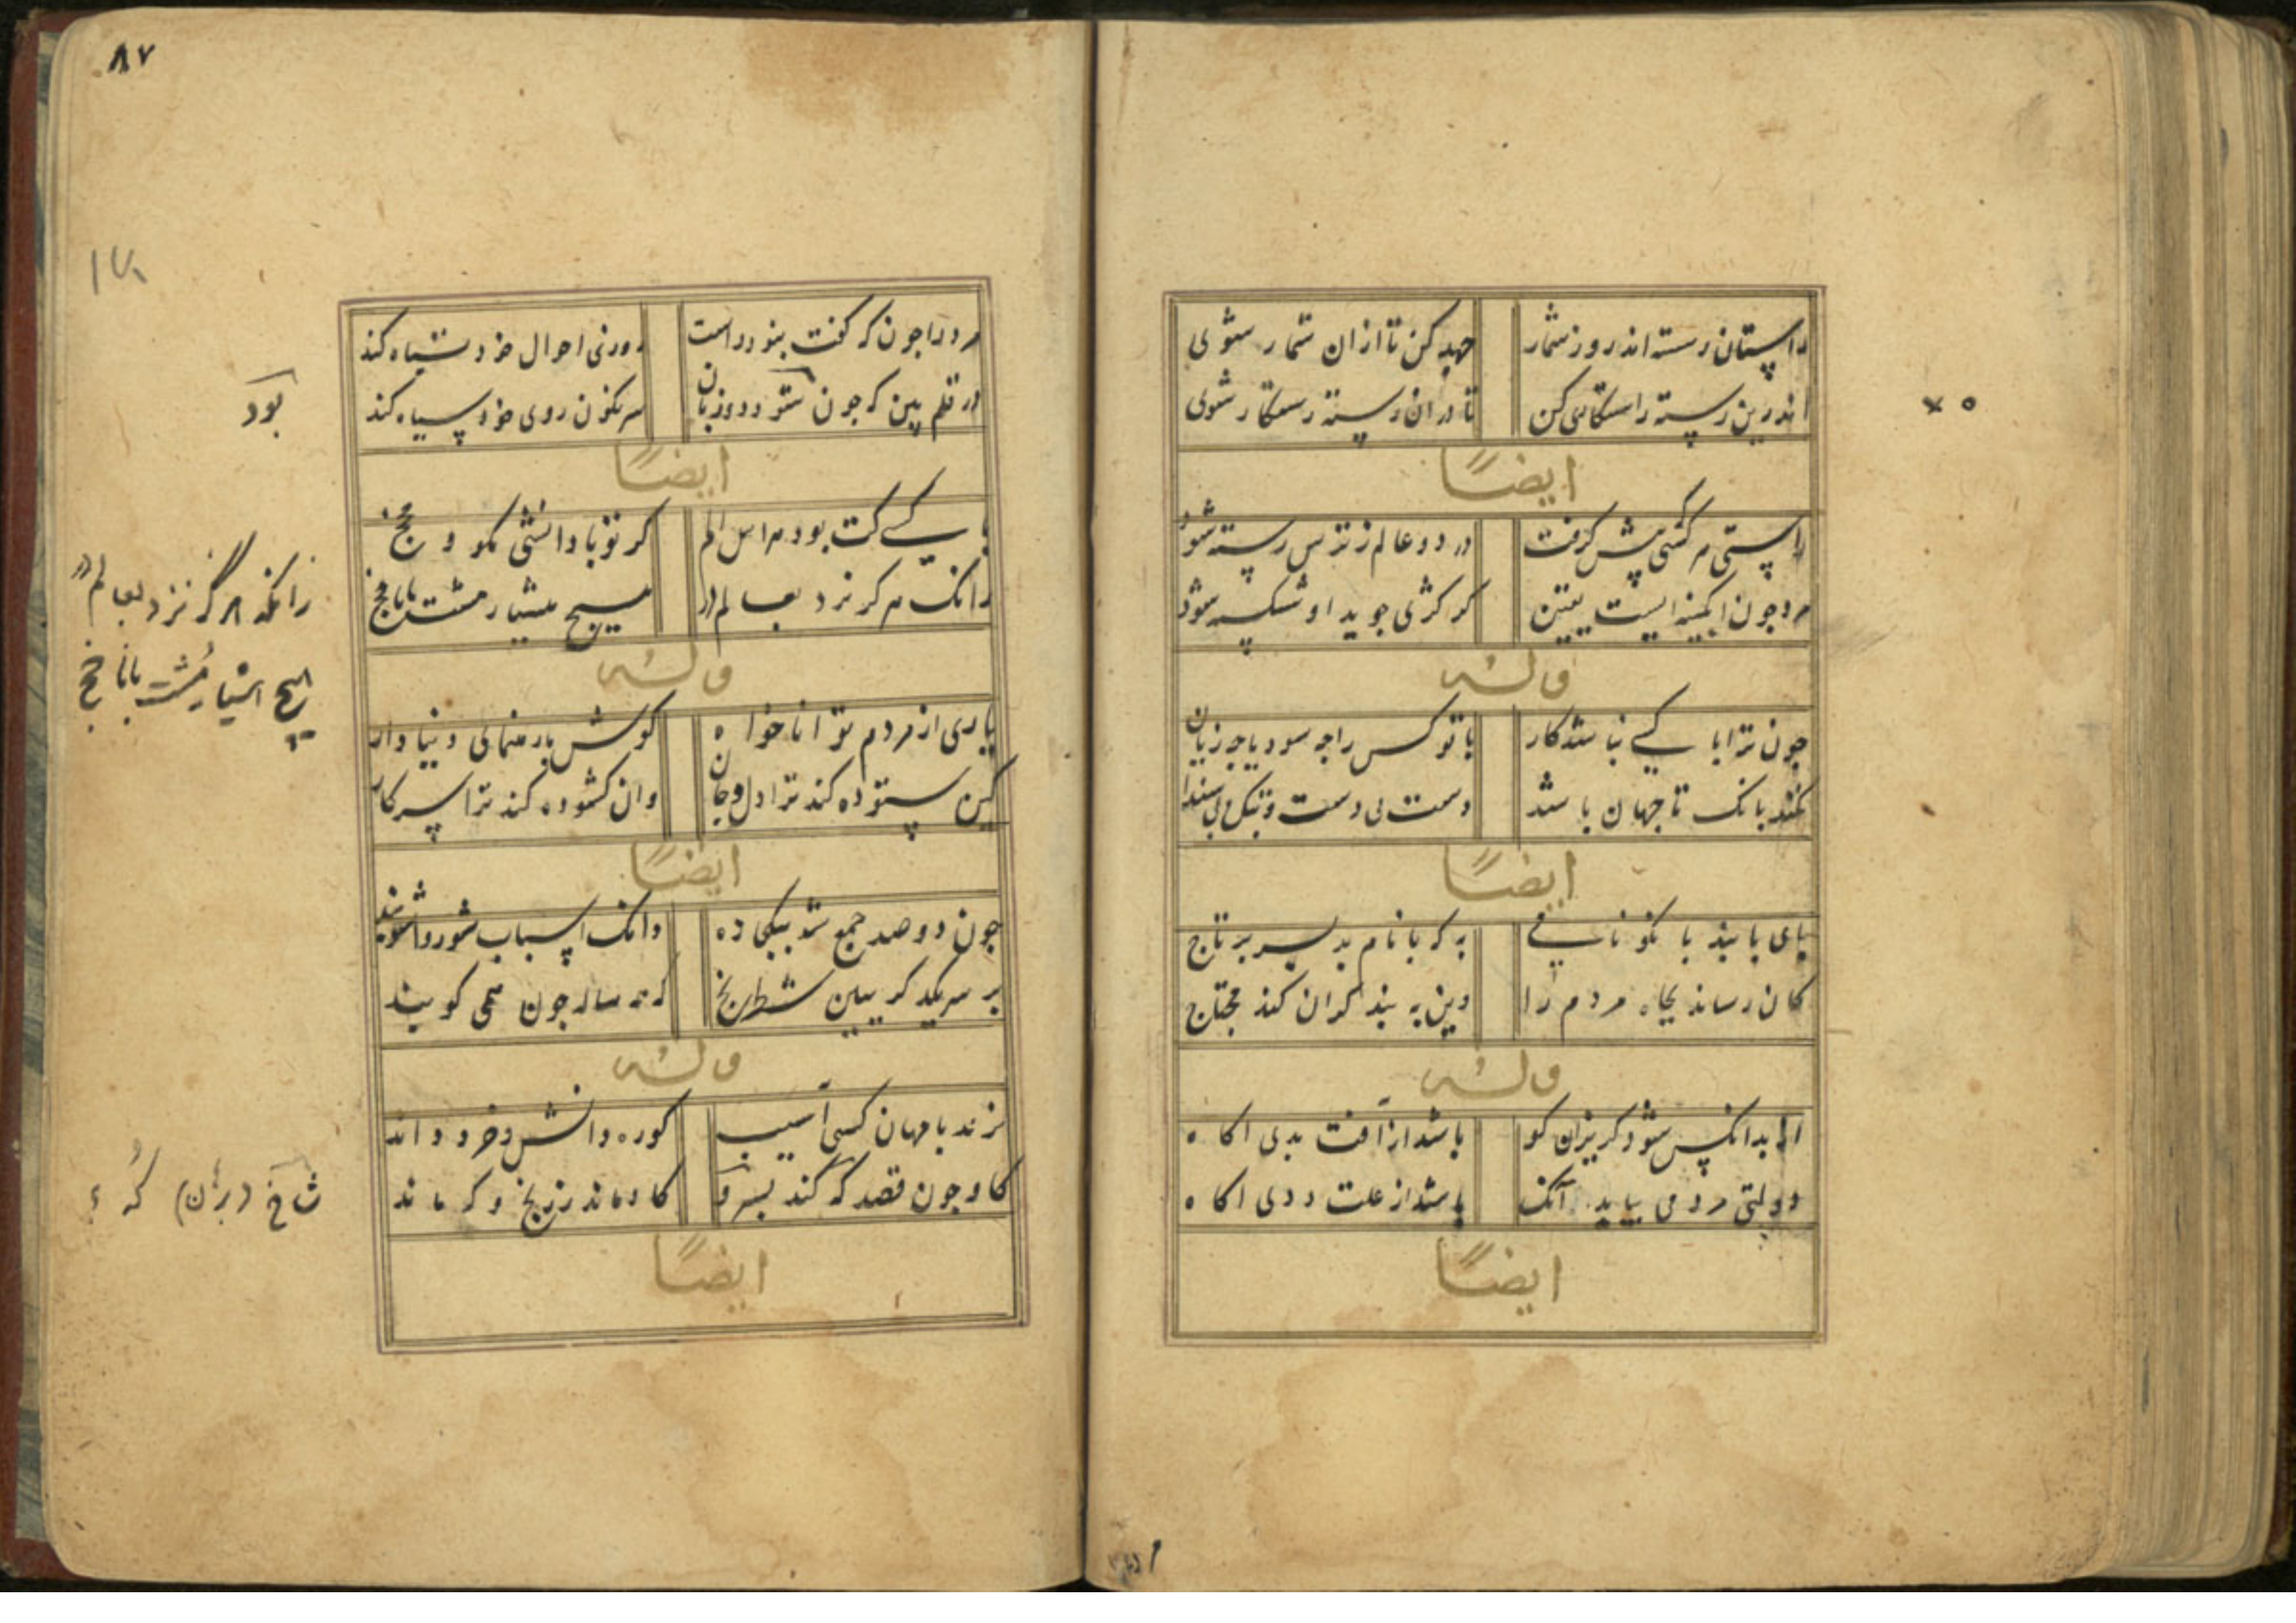 راستان رسته اند روز شمار جهد کن تا ازان شمار شوی
اندرین رسته راستکاری کن تا دران رسته رستکار شوی
ایضاً
راستی هر کسی پیش کرفت در دو عالم ز ترس رسته شود
مرد جون ابکینه ایست یقین کر کژی جوید او شکسته شود
وله
جون ترا با کسی نباشد کار با تو کس را جه سود یا جه زیان
نکند بانک تا جهان باشد دست بی دست
ایضاً
پای با بند با نکو نامی به که با نام بد بسر بر تاج
کان رساند بجاه مردم را وین به بند کران کند محتاج
وله
از بدانکس شود کریزان کو باشد از آفت بدی اکاه
مردمی بیابد آنک باشد از علت ددی اکاه
ایضاً
۸۷
۱۷۱
مرد را جون که کفت بنود راست روزنی احوال خود تباه کند
در قلم بین که جون ستود دو زبان سرنکون روی خود سیاه کند
بود
ایضاً
با کسی کت بود مراسل الم کر تو با دانشی مکو و مخج
زانک هرکز نزد بعالم در هیچ هشیار مشت با نامخج
زانکه هرگز نزد بعالم در
هیچ هشیار مُشت با نامخج
وله
یاری از مردم توانا خواه کوش با رهنمای و بینا دار
کین ستوده کند ترا دل و جان وان کشوده کند ترا سر کار
ایضاً
جون دو صد جمع شد بیکی ده وانک اسباب شور و اشوبند
بر سر یکدکر ببین شطرنج که همه ساله جون همی کوبند
وله
نزند با مهان کسی آسیب کوره دانش و خرد داند
کاو جون قصد که کند بسرو کاو ماند ز رنج و که ماند
ایضاً